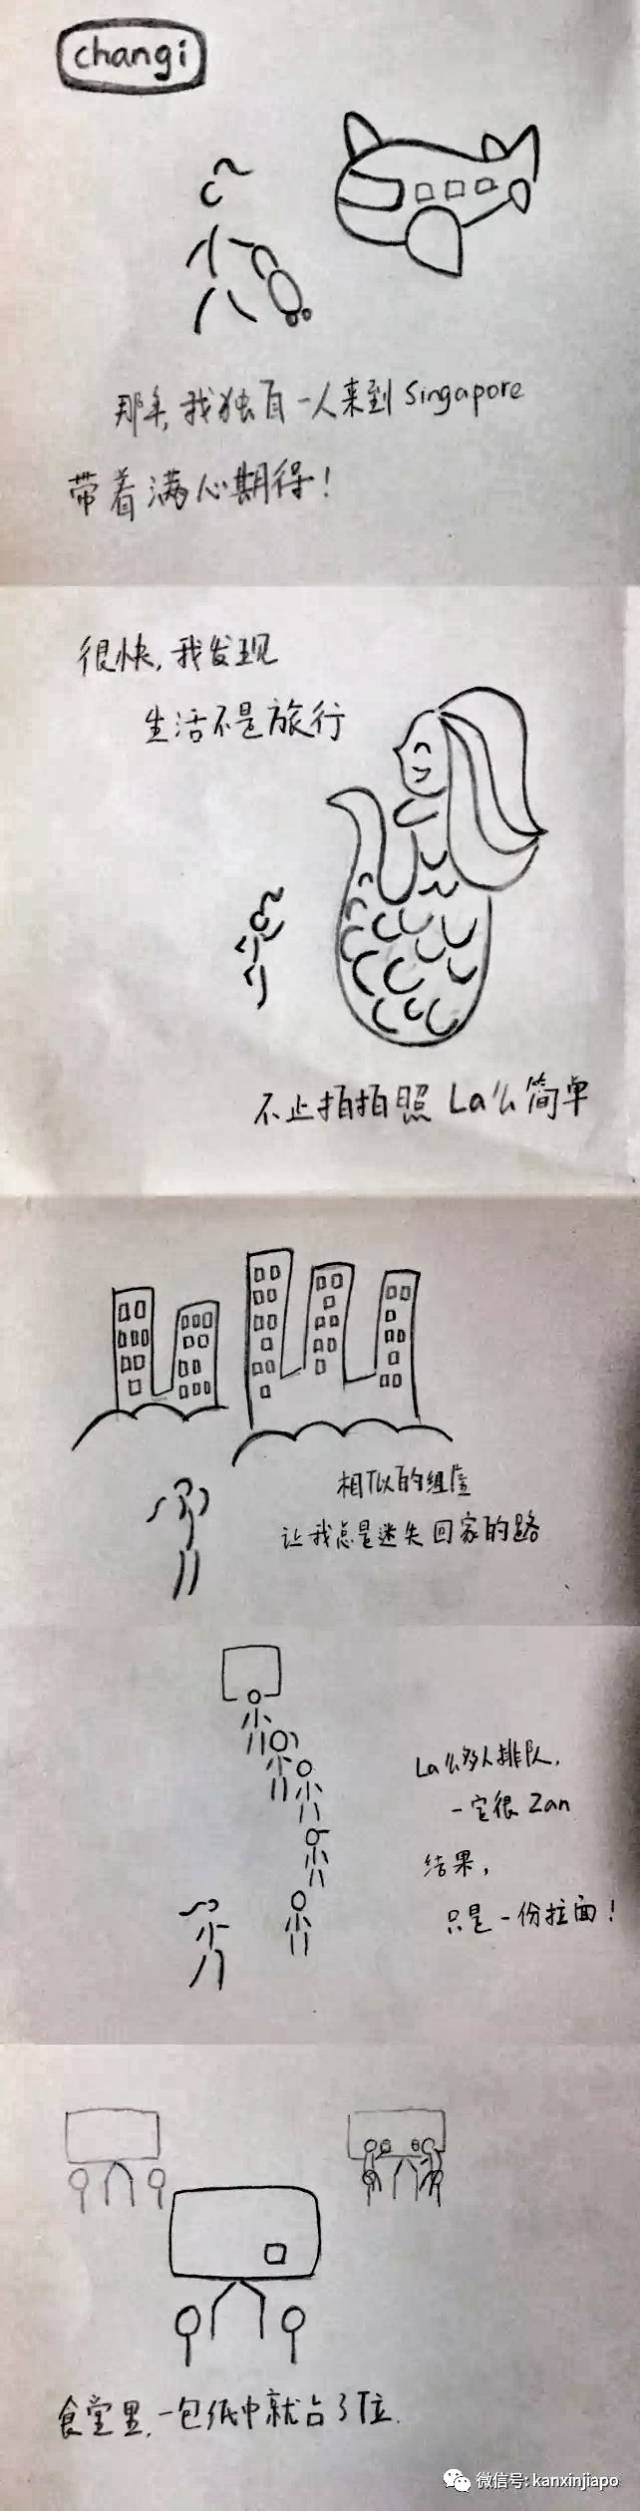 changi
那年,我独自一人来到 Singapore
带着满心期待!
很快,我发现
生活不是旅行
不止拍拍照 La么简单
相似的组屋
让我总是迷失回家的路
La么多人排队,
一定很 Zan
结果,
只是一份拉面!
食堂里,一包纸巾就占了位.
微信号: kanxinjiapo